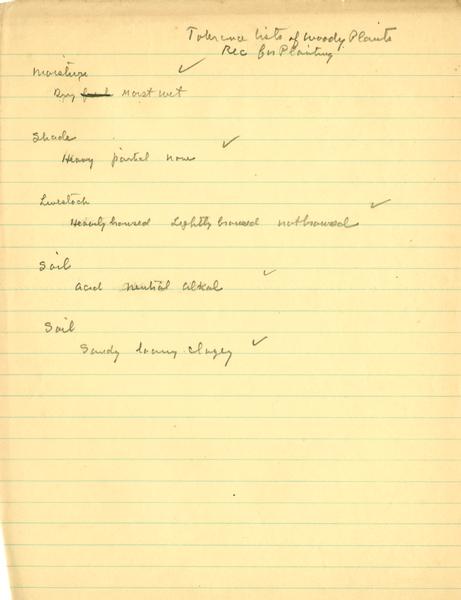 Tolerance Lists of Woody Plants
Rec for Planting
Moisture ✓
Dry moist wet
Shade ✓
Heavy partial none
Livestock
Heavily browsed Lightly browsed not browsed ✓
Soil
acid neutral alkal ✓
Soil
Sandy loamy clayey ✓